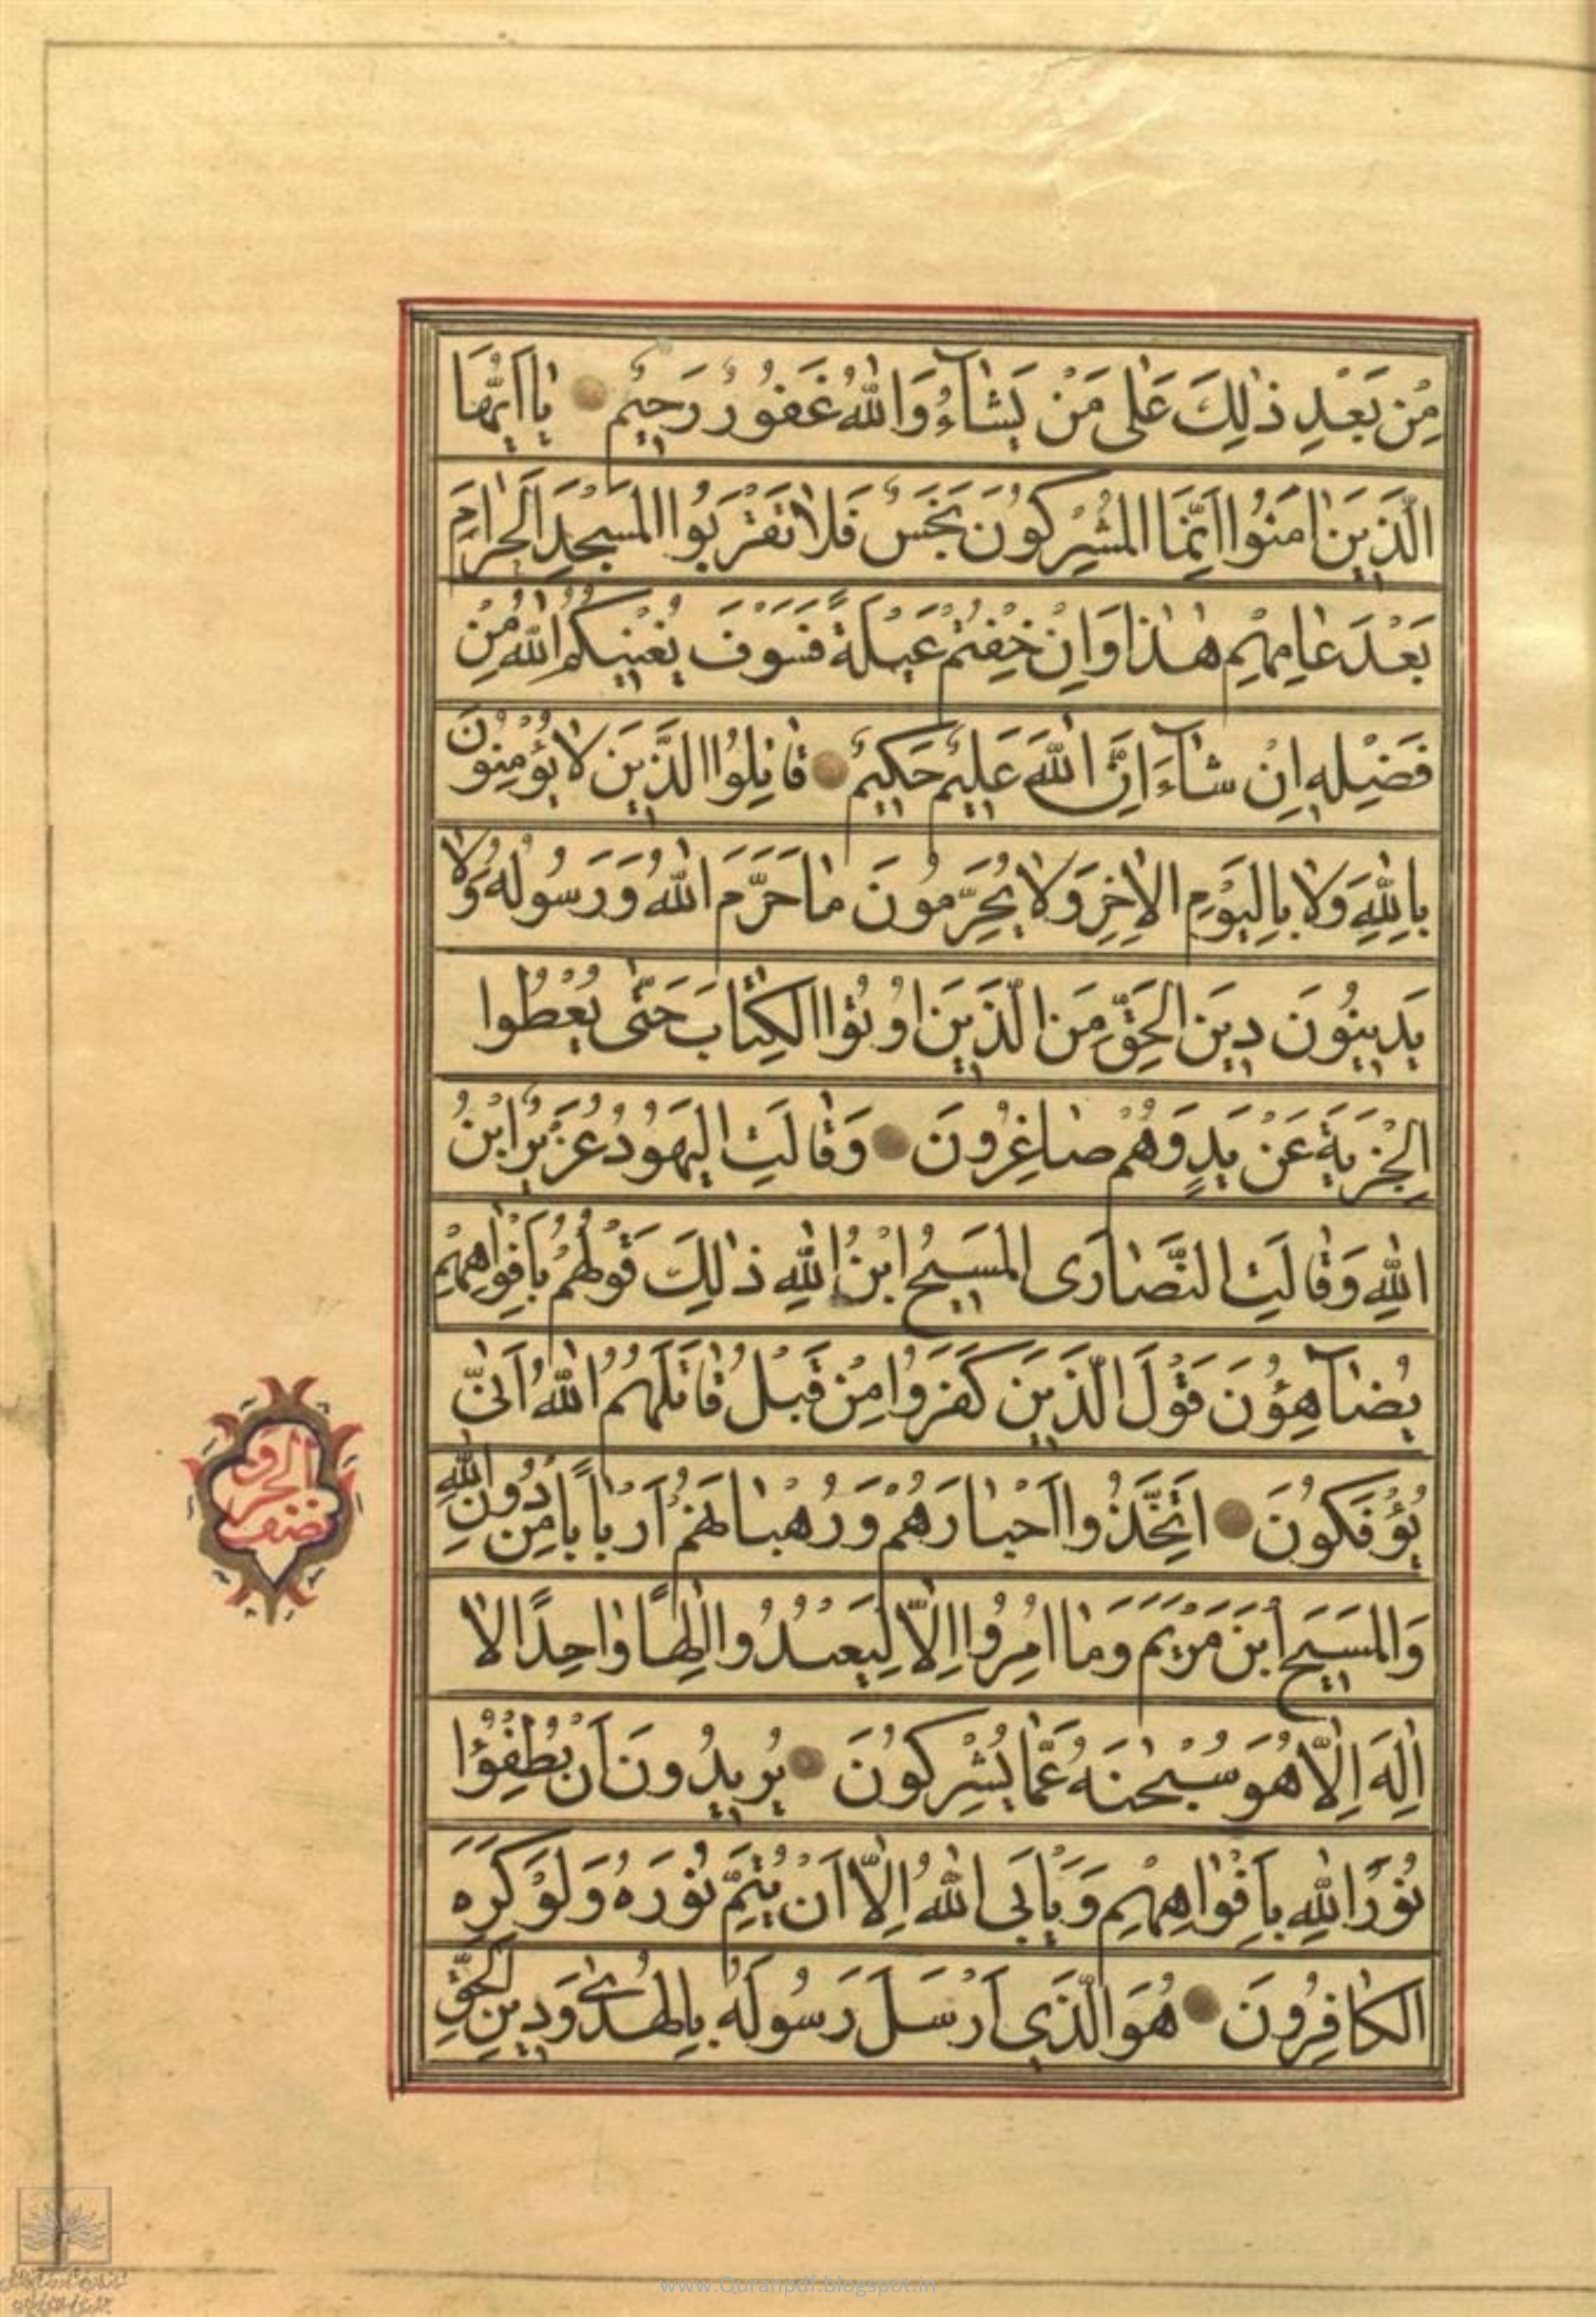 مِنْ بَعْدِ ذٰلِكَ عَلٰى مَنْ يَشٰآءُ وَاللّٰهُ غَفُورٌ رَحِيمٌ يٰا اَيُّهَا
الَّذِينَ اٰمَنُوا اِنَّمَا المُشْرِكُونَ نَجَسٌ فَلاٰ تَقْرَبُوا المَسْجِدَ الحَرامَ
بَعْدَ عٰامِهِمْ هٰذٰا وَاِنْ خِفْتُمْ عَيْلَةً فَسَوْفَ يُغْنِيكُمُ اللّٰهُ مِنْ
فَضْلِهِ اِنْ شٰآءَ اِنَّ اللّٰهَ عَلِيمٌ حَكِيمٌ قٰاتِلُوا الَّذِينَ لاٰ يُؤْمِنُونَ
بِاللّٰهِ وَلاٰ بِاليَوْمِ الاٰخِرِ وَلاٰ يُحَرِّمُونَ مٰا حَرَّمَ اللّٰهُ وَرَسُولُهُ وَلاٰ
يَدِينُونَ دِينَ الحَقِّ مِنَ الَّذِينَ اُوتُوا الكِتٰابَ حَتّٰى يُعْطُوا
الجِزْيَةَ عَنْ يَدٍ وَهُمْ صٰاغِرُونَ وَقٰالَتِ اليَهُودُ عُزَيْرٌ ابْنُ
اللّٰهِ وَقٰالَتِ النَّصٰارَى المَسِيحُ ابْنُ اللّٰهِ ذٰلِكَ قَوْلُهُمْ بِاَفْوٰاهِهِمْ
يُضٰآهِؤُنَ قَوْلَ الَّذِينَ كَفَرُوا مِنْ قَبْلُ قٰاتَلَهُمُ اللّٰهُ اَنّٰى
يُؤْفَكُونَ اتَّخَذُوا اَحْبٰارَهُمْ وَرُهْبٰانَهُمْ اَرْبٰاباً مِنْ دُونِ اللّٰهِ
وَالمَسِيحَ ابْنَ مَرْيَمَ وَمٰا اُمِرُوا اِلاّٰ لِيَعْبُدُوا اِلٰهًا وٰاحِدًا لاٰ
اِلٰهَ اِلاّٰ هُوَ سُبْحٰنَهُ عَمّٰا يُشْرِكُونَ يُرِيدُونَ اَنْ يُطْفِؤُا
نُوْرَ اللّٰهِ بِاَفْوٰاهِهِمْ وَيَاْبَى اللّٰهُ اِلاّٰ اَنْ يُتِمَّ نُوْرَهُ وَلَوْ كَرِهَ
الكٰافِرُونَ هُوَ الَّذِى اَرْسَلَ رَسُولَهُ بِالهُدٰى وَدِينِ الحَقِّ
نصف
www.Quranpdf.blogspot.in